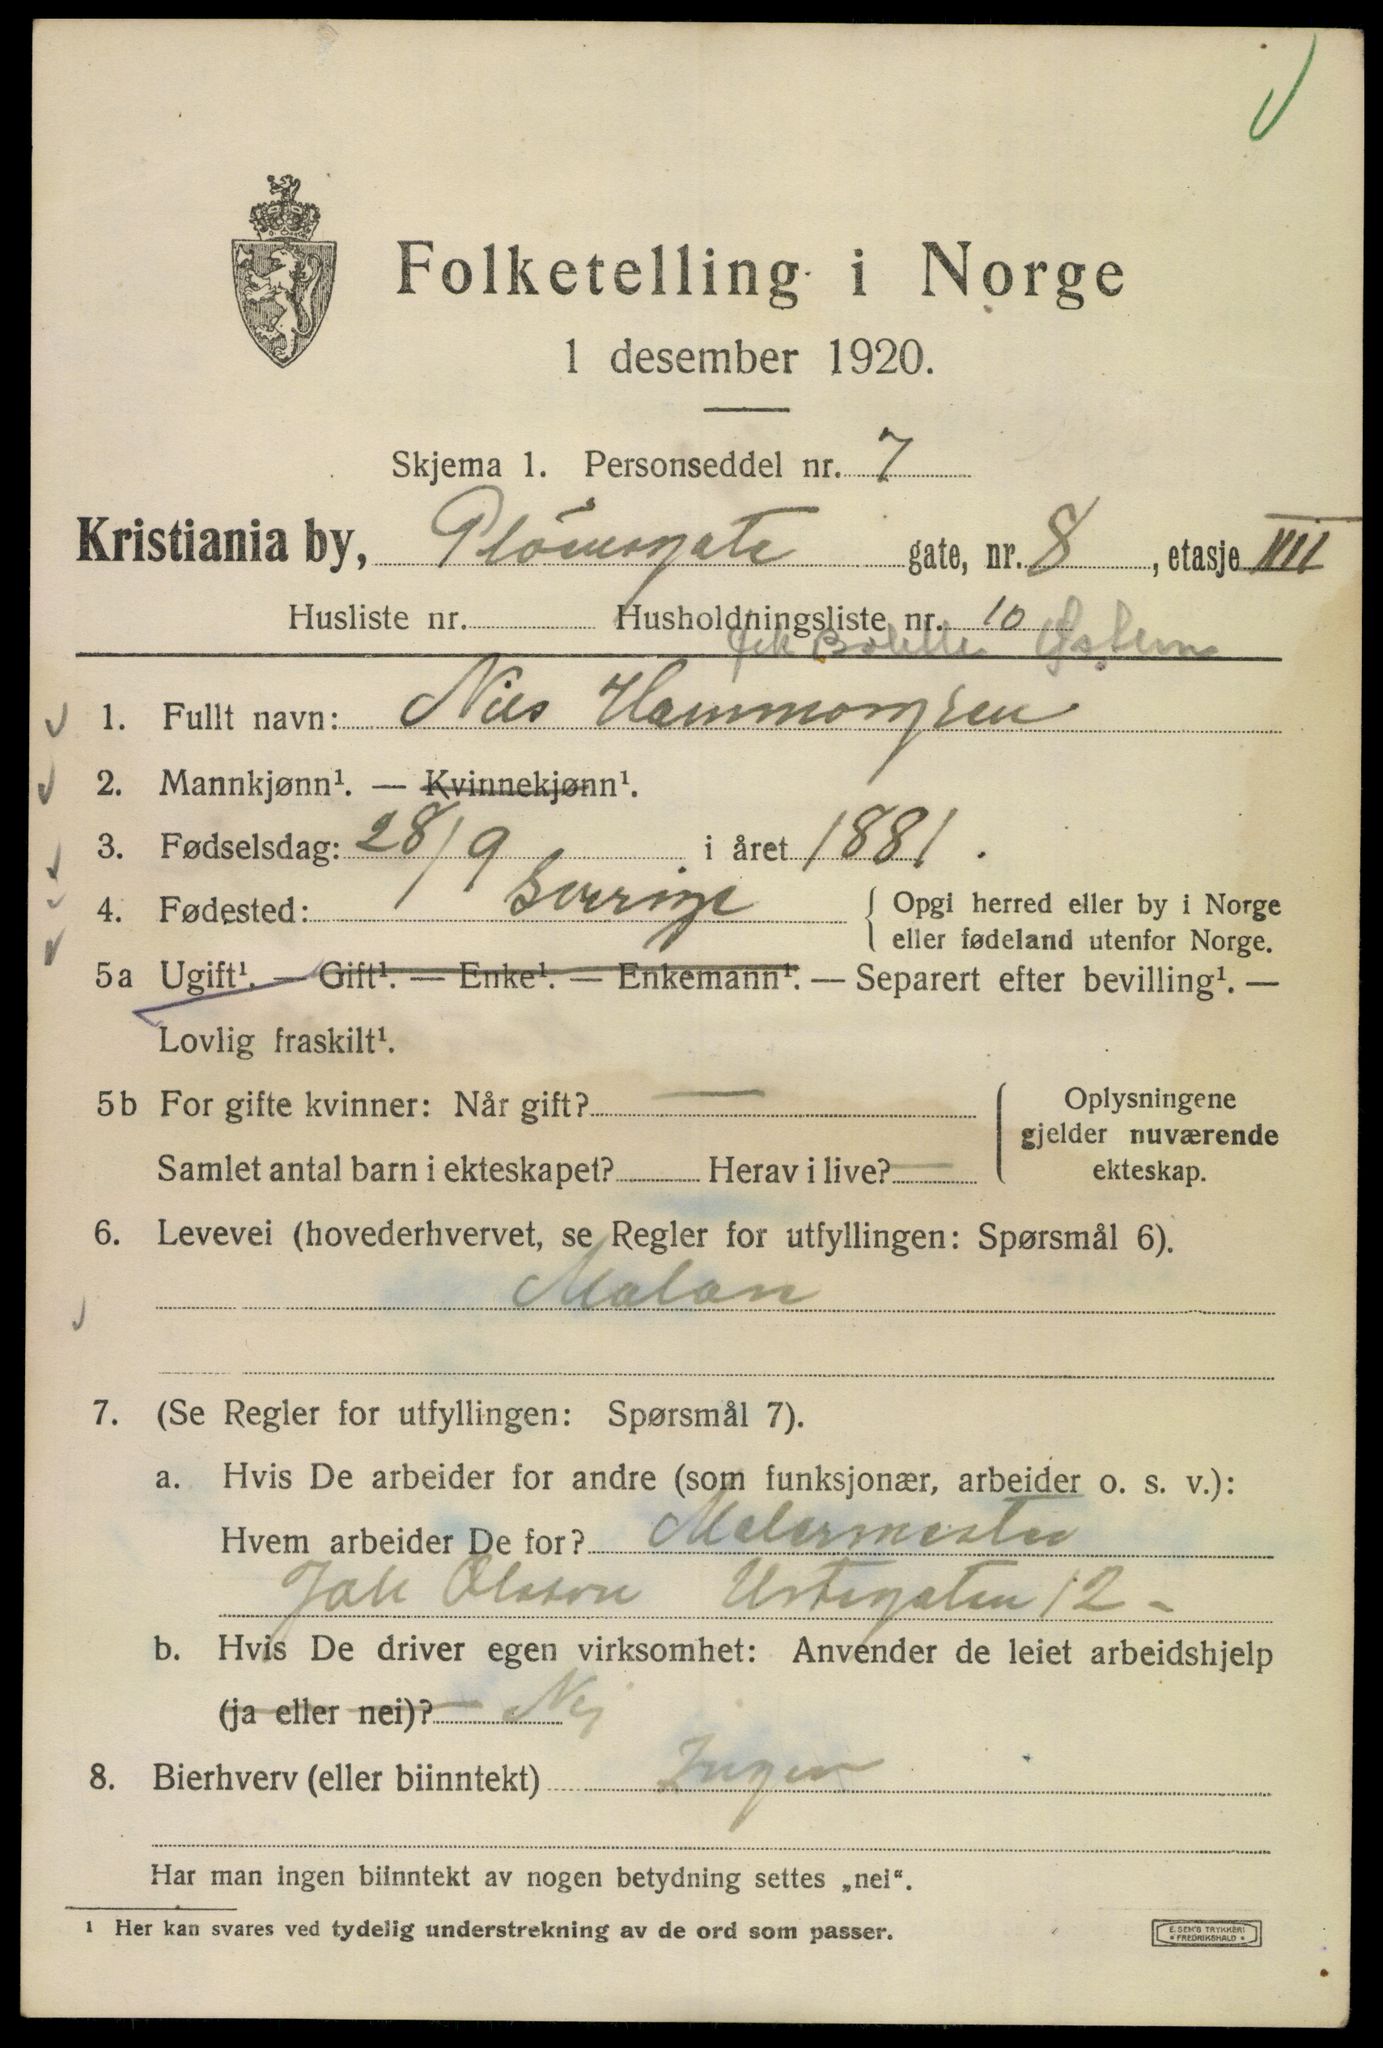 Folketelling i Norge
1 desember 1920.
Skjema 1. Personseddel nr. 7
Kristiania by, Plöensgate gate, nr. 8, etasje VII
Husliste nr. Husholdningsliste nr. 10
1. Fullt navn: Nils Hammorgren
2. Mannkjønn¹. — Kvinnekjønn¹.
3. Fødselsdag: 28/9 i året 1881.
4. Fødested: Sverige { Opgi herred eller by i Norge
eller fødeland utenfor Norge.
5a Ugift¹. — Gift¹. — Enke¹. — Enkemann¹. — Separert efter bevilling¹. —
Lovlig fraskilt¹.
5b For gifte kvinner: Når gift? —
Samlet antal barn i ekteskapet? Herav i live? —
Oplysningene
gjelder nuværende
ekteskap.
6. Levevei (hovederhvervet, se Regler for utfyllingen: Spørsmål 6).
Malan
7. (Se Regler for utfyllingen: Spørsmål 7).
a. Hvis De arbeider for andre (som funksjonær, arbeider o. s. v.):
Hvem arbeider De for? Malermester
Joh Olsson Urtegaten 12 -
b. Hvis De driver egen virksomhet: Anvender de leiet arbeidshjelp
(ja eller nei)? Nej
8. Bierhverv (eller biinntekt) Ingen
Har man ingen biinntekt av nogen betydning settes „nei“.
¹ Her kan svares ved tydelig understrekning av de ord som passer.
E. SEM'S TRYKKERI
FREDRIKSHALD